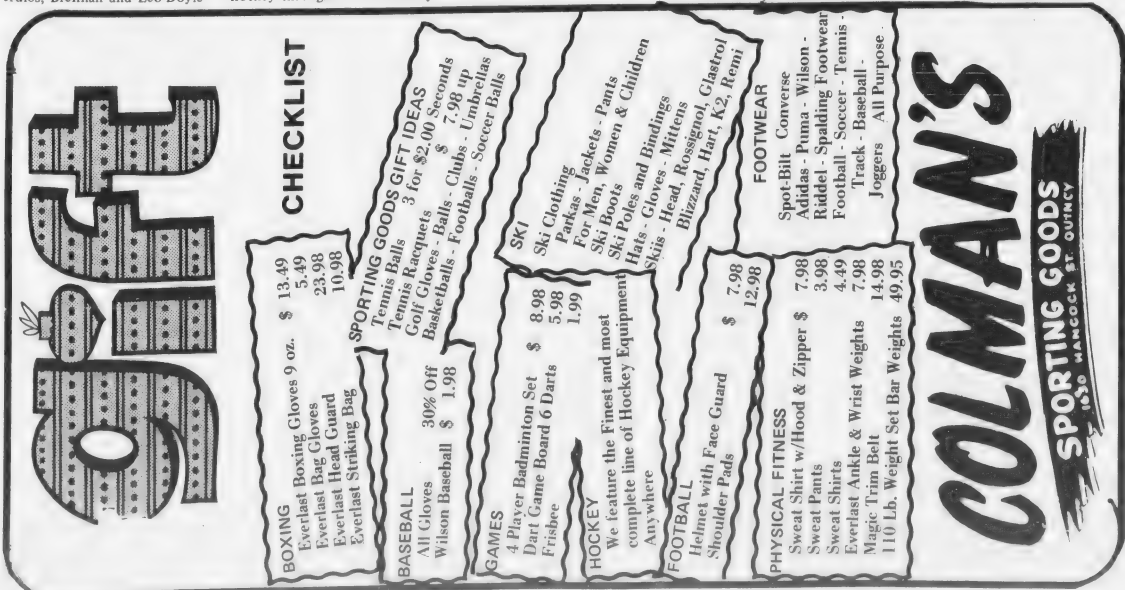 Brennan and Leo Doyle
gift
CHECKLIST
BOXING
Everlast Boxing Gloves 9 oz. $ 13.49
Everlast Bag Gloves 5.49
Everlast Head Guard 23.98
Everlast Striking Bag 10.98
SPORTING GOODS GIFT IDEAS
Tennis Balls 3 for $2.00 Seconds
Tennis Racquets $ 7.98 up
Golf Gloves - Balls - Clubs - Umbrellas
Basketballs - Footballs - Soccer Balls
BASEBALL
All Gloves 30% Off
Wilson Baseball $ 1.98
GAMES
4 Player Badminton Set $ 8.98
Dart Game Board 6 Darts 5.98
Frisbee 1.99
SKI
Ski Clothing
Parkas - Jackets - Pants
For Men, Women & Children
Ski Boots
Ski Poles and Bindings
Hats - Gloves - Mittens
Skiis - Head, Rossignol, Glastrol
Blizzard, Hart, K2, Remi
HOCKEY
We feature the Finest and most
complete line of Hockey Equipment
Anywhere
FOOTBALL
Helmet with Face Guard $ 7.98
Shoulder Pads 12.98
FOOTWEAR
Spot-Bilt Converse
Adidas - Puma - Wilson -
Riddel - Spalding Footwear
Football - Soccer - Tennis -
Track - Baseball -
Joggers All Purpose
PHYSICAL FITNESS
Sweat Shirt w/Hood & Zipper $ 7.98
Sweat Pants 3.98
Sweat Shirts 4.49
Everlast Ankle & Wrist Weights 7.98
Magic Trim Belt 14.98
110 Lb. Weight Set Bar Weights 49.95
COLMAN'S
SPORTING GOODS
1630 HANCOCK ST. QUINCY